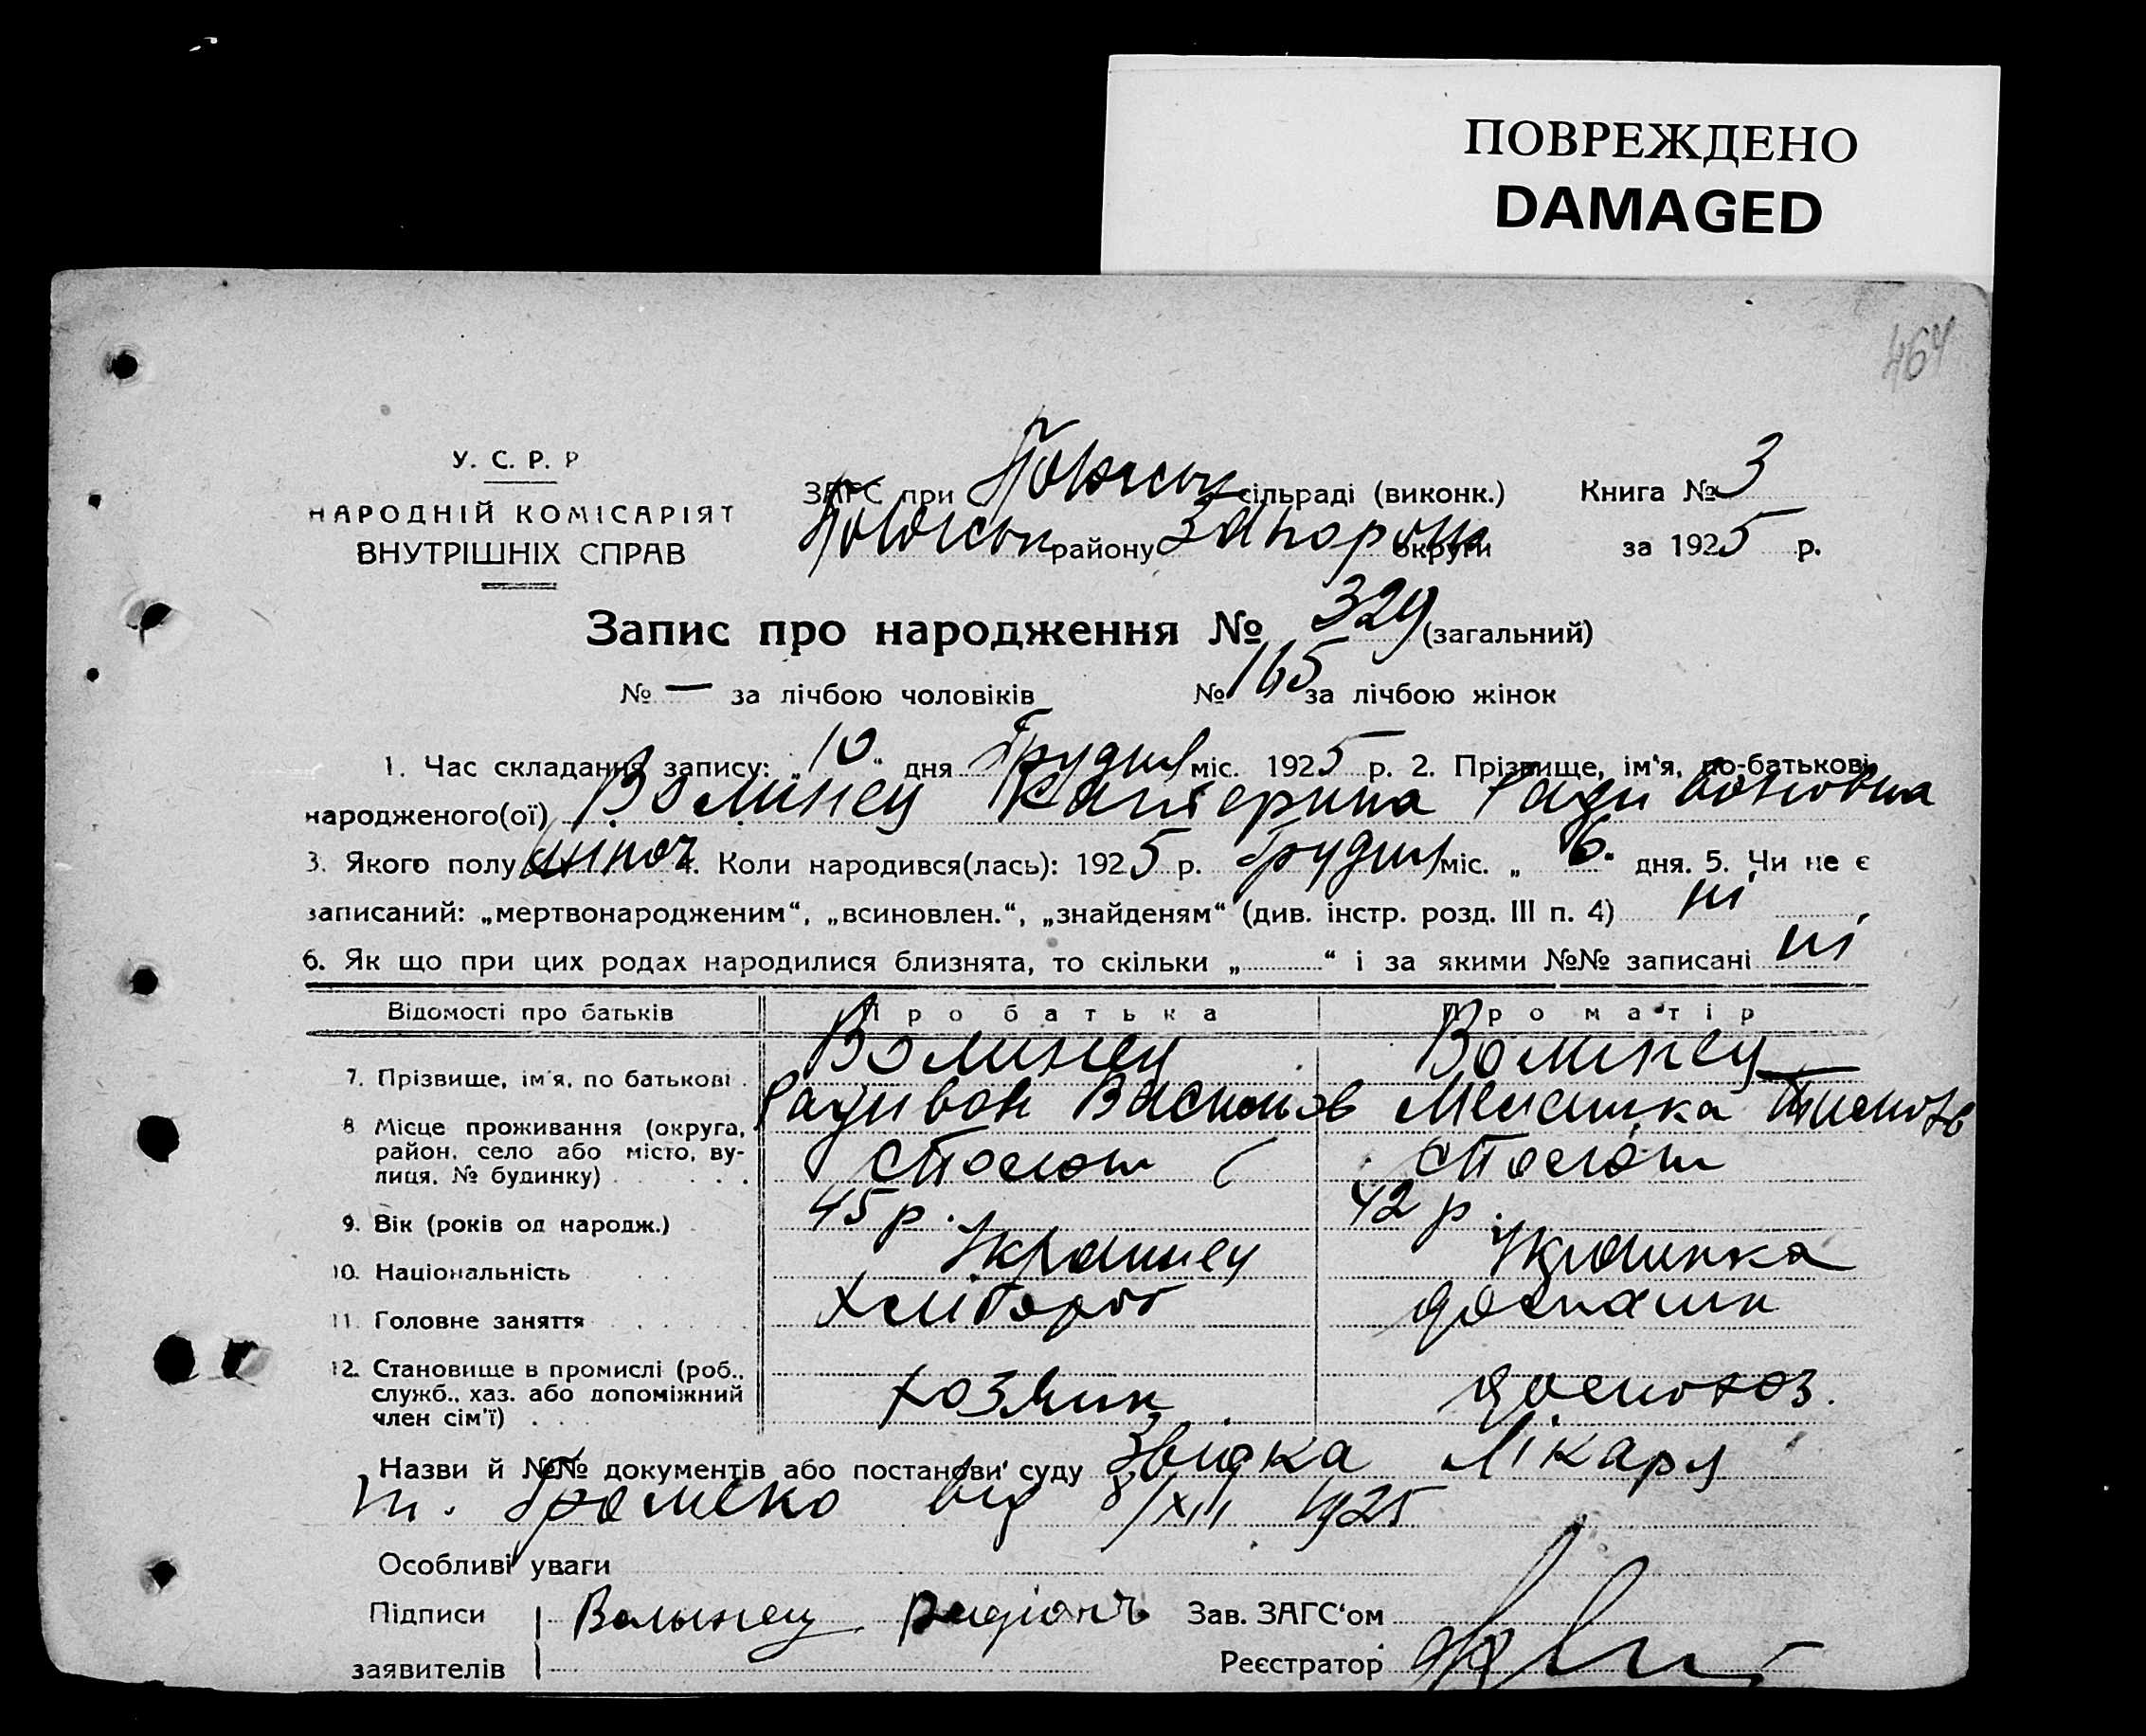 ПОВРЕЖДЕНО
DAMAGED
464
У. С. Р. Р
НАРОДНІЙ КОМІСАРІЯТ
ВНУТРІШНІХ СПРАВ
ЗАГС при сільраді (виконк.) Книга № 3
району Запоріш округи за 1925 р.
Запис про народження № 329 (загальний)
№ — за лічбою чоловіків № 165 за лічбою жінок
1. Час складання запису: „10“ дня Грудня міс. 1925 р. 2. Прізвище, ім'я, по-батькові
народженого(ої) Волинец Катерина Радивоновна
3. Якого полу жіноч 4. Коли народився(лась): 1925 р. Грудня міс. „ 6. дня. 5. Чи не є
записаний: „мертвонародженим“, „всиновлен.“, „знайденям“ (див. інстр. розд. III п. 4) ні
6. Як що при цих родах народилися близнята, то скільки „ “ і за якими №№ записані ні
Відомості про батьків Про батька Про матір
7. Прізвище, ім'я, по батькові Волинец Волинец
Радивон Васильов Меланка
8 Місце проживання (округа,
район, село або місто, ву-
лиця, № будинку)
9. Вік (років од народж.) 45 р. 42 р.
10. Національність Українец Українка
11. Головне заняття Хлібороб домашн
12. Становище в промислі (роб.,
служб., хаз. або допоміжний
член сім'ї) хозяин домохоз.
Назви й №№ документів або постанови суду Звідка Лікаря
т. Громеко від 8/XII 1925
Особливі уваги
Підписи Волынец Радіонъ Зав. ЗАГС'ом
заявителів Реєстратор